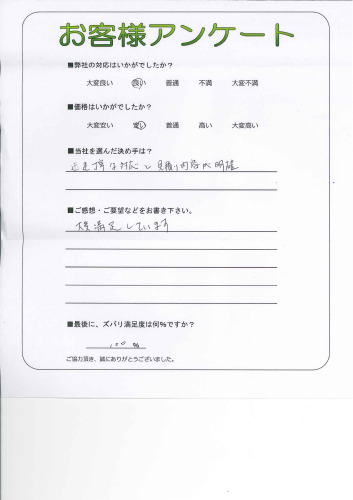 お客様アンケート
■弊社の対応はいかがでしたか？
大変良い 良い 普通 不満 大変不満
■価格はいかがでしたか？
大変安い 安い 普通 高い 大変高い
■当社を選んだ決め手は？
迅速丁寧な対応と見積り内容が明確
■ご感想・ご要望などをお書き下さい。
大変満足しています
■最後に、ズバリ満足度は何%ですか？
100%
ご協力頂き、誠にありがとうございました。